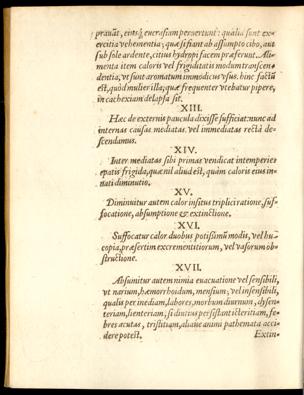 prauāt, eiusq́; eucrasiam peruertunt: qualia sunt ex-
ercitia vehementia; quæ si fiant ab assumpto cibo, aut
sub sole ardente, citius hydropi facem præferunt. Ali-
menta item caloris vel frigiditatis modum transcen-
dentia; vt sunt aromatum immodicus vsus. hinc factū
est, quòd mulier illa; quæ frequenter vtebatur pipere,
in cachexiam delapsa sit.
XIII.
Hæc de externis paucula dixisse sufficiat: nunc ad
internas causas mediatas vel immediatas rectà de-
scendamus.
XIV.
Inter mediatas sibi primas vendicat intemperies
epatis frigida, quæ nil aliud est, quàm caloris eius in-
nati diminutio.
XV.
Diminuitur autem calor insitus triplici ratione, suf-
focatione, absumptione & extinctione.
XVI.
Suffocatur calor duobus potissimū modis, vel hu-
copia, præsertim excrementitiorum, vel vasorum ob-
structione.
XVII.
Absumitur autem nimia euacuatione vel sensibili,
vt narium, hæmorrhoidum, mensium; vel insensibili,
qualis per inediam, labores, morbum diurnum, dysen-
teriam, lienteriam, si diutius persistant icteritiam, fe-
bres acutas, tristitiam, aliaue animi pathemata acci-
dere potest.
Extin-